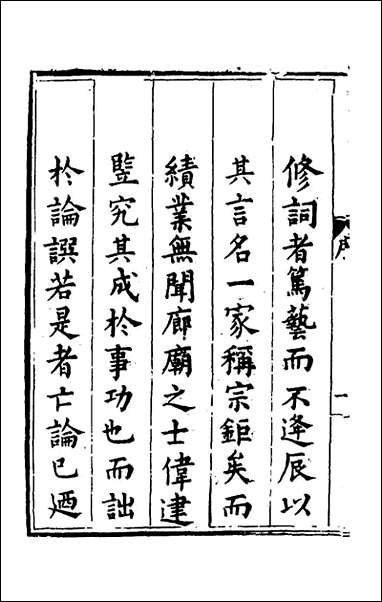 序
修詞者篤藝而不逢辰以
其言名一家稱宗鉅矣而
績業無聞廊廟之士偉建
豎究其成於事功也而詘
於論譔若是者亡論已迺